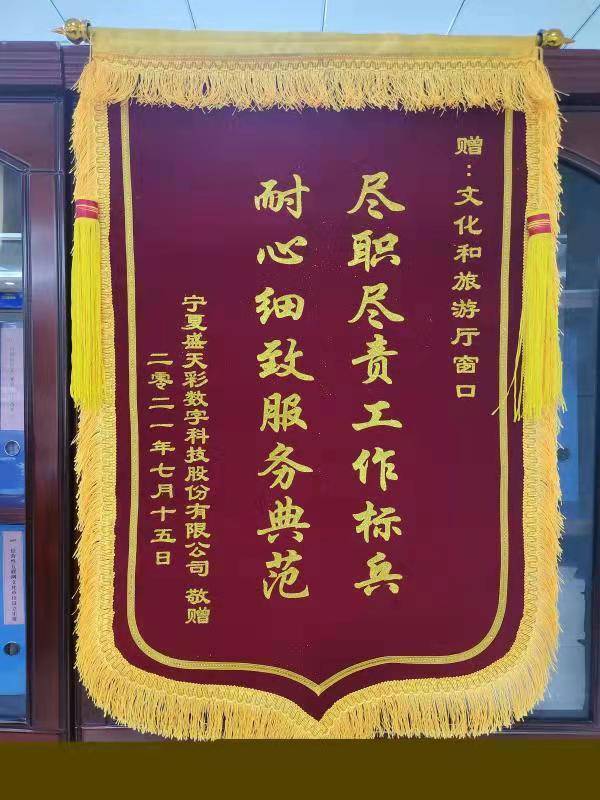 赠：文化和旅游厅窗口
尽职尽责工作标兵
耐心细致服务典范
宁夏盛天彩数字科技股份有限公司 敬赠
二零二一年七月十五日